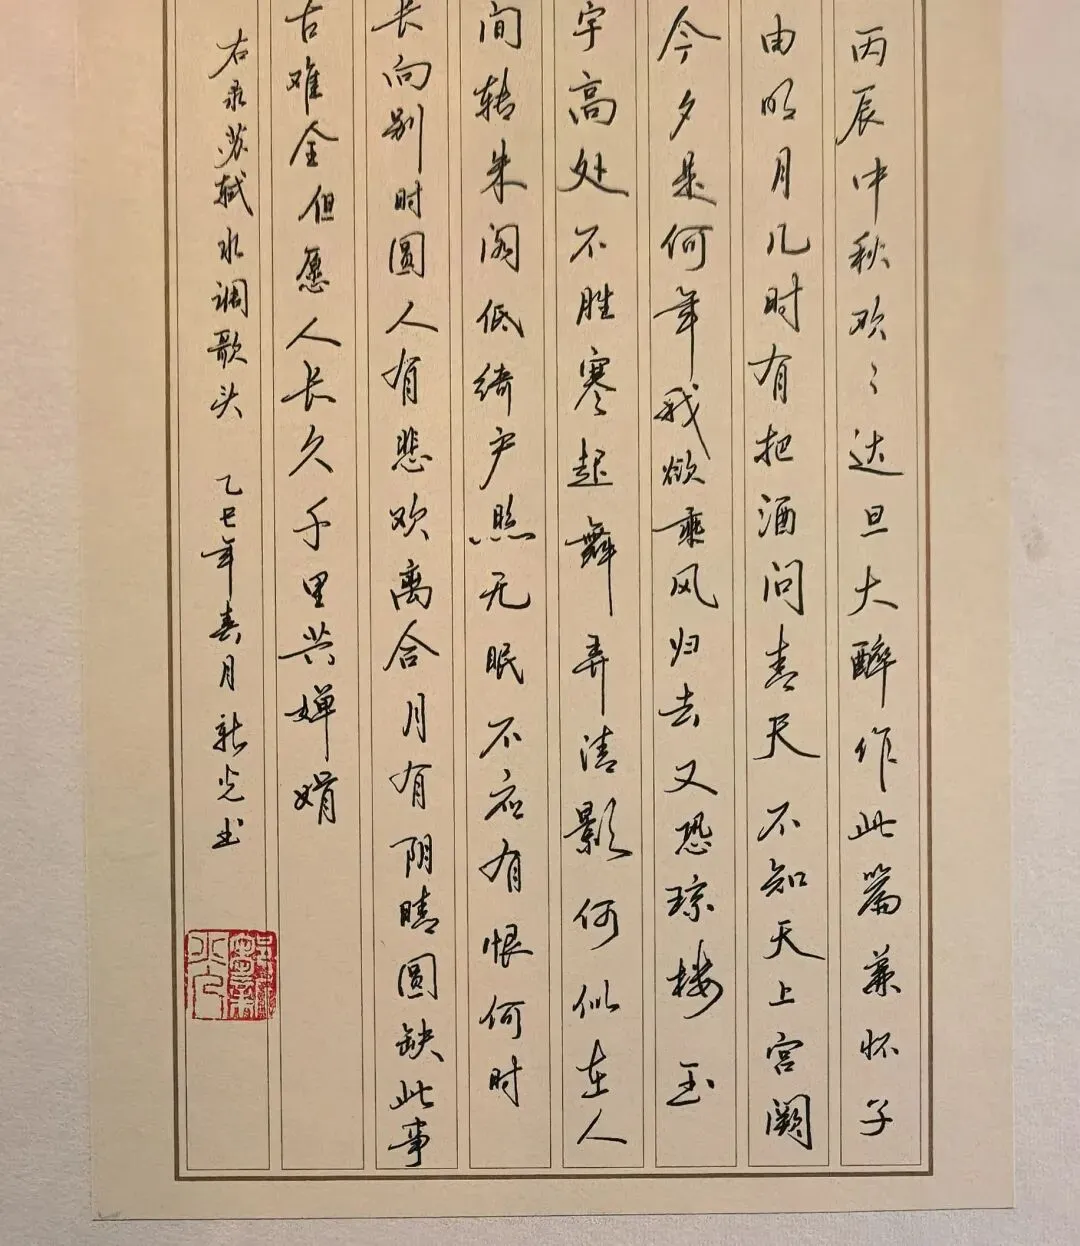 丙辰中秋欢々达旦大醉作此篇兼怀子
由明月几时有把酒问青天不知天上宫阙
今夕是何年我欲乘风归去又恐琼楼玉
宇高处不胜寒起舞弄清影何似在人
间转朱阁低绮户照无眠不应有恨何时
长向别时圆人有悲欢离合月有阴晴圆缺此事
古难全但愿人长久千里共婵娟
右录苏轼水调歌头 乙巳年春月新光书